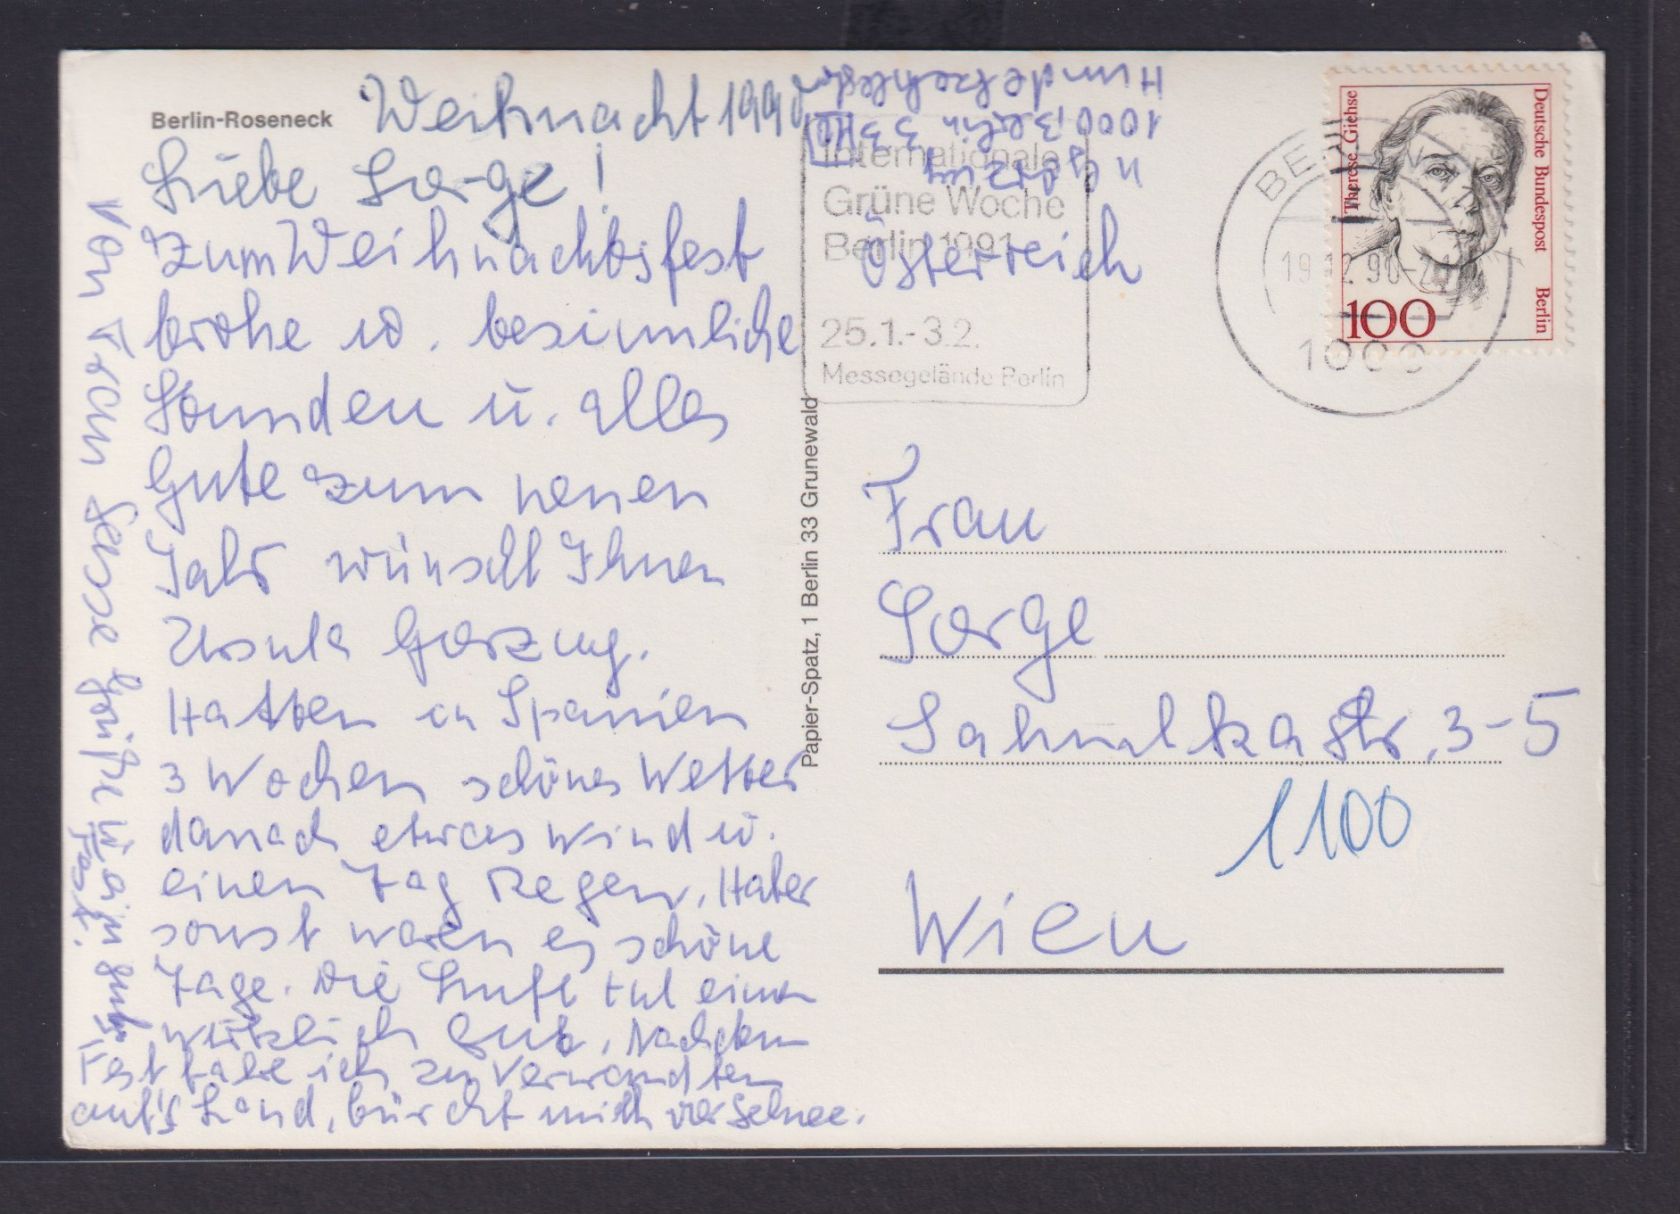 Berlin-Roseneck
Weihnacht 1990
Liebe Sorge!
Zum Weihnachtsfest
frohe u. besinnliche
Stunden u. alles
Gute zum neuen
Jahr wünscht Ihnen
Ursula
Hatten in Spanien
3 Wochen schönes Wetter
danach etwas Wind u.
einen Tag Regen. Aber
sonst waren es schöne
Tage. Die Luft tut einen
wirklich gut. Nach dem
Fest fahre ich zu Verwandten
auf's Land, fürchte mich vor Schnee.
Von
Grüße u. ein
Fest.
Papier-Spatz, 1 Berlin 33 Grunewald
1000 Berlin 33
Internationale
Grüne Woche
Berlin 1991
25.1.-3.2.
Messegelände Berlin
Österreich
BERLIN 12
19.12.90-21
1000
Therese Giehse
Deutsche Bundespost Berlin
100
Frau
Sorge
str. 3-5
1100
Wien